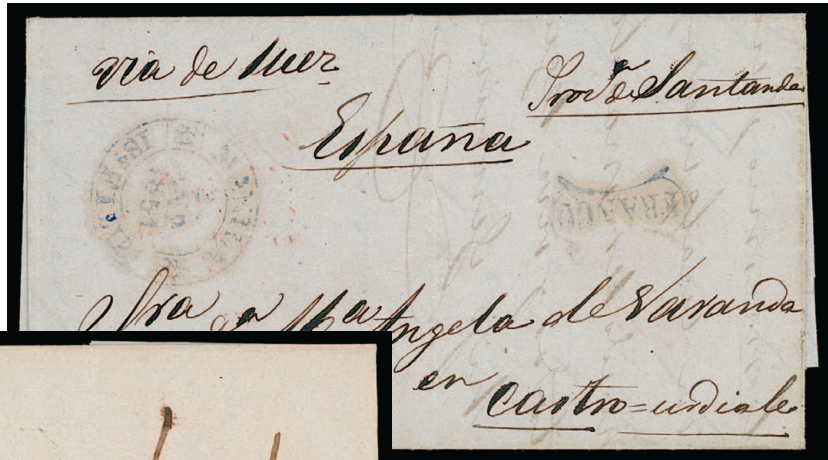 via de
Provª de Santander
España
1851
FRANCO
Sra Dª Mª Angela de Varanda
en
Castro=urdiale